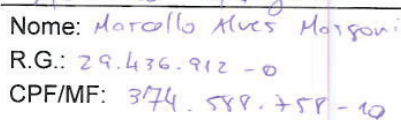 Nome: Marcello Alves
R.G.: 29.436.912-0
CPF/MF: 374.588.758-10